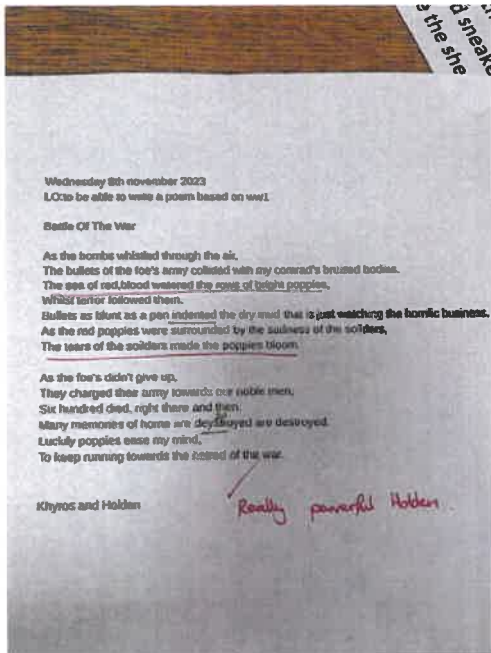 d sneake
e the she
Wednesday 8th november 2023
LO:to be able to wrte a poem based on ww1
Battle Of The War
As the bombs whistled through the air,
The bullets of the foe's army collided with my comrad's bruised bodies.
The sea of red,blood watered the rows of bright poppies,
Whilst terror followed them.
Bullets as blunt as a pen indented the dry mud that is just watching the horrific business.
As the red poppies were surrounded by the sadness of the soilders,
The tears of the soilders made the poppies bloom.
As the foe's didn't give up,
They charged their army towards our noble men,
Six hundred died, right there and then.
Many memories of home are deystroyed are destroyed.
Luckily poppies ease my mind,
To keep running towards the hatred of the war.
Khyros and Holden
Really powerful Holden.